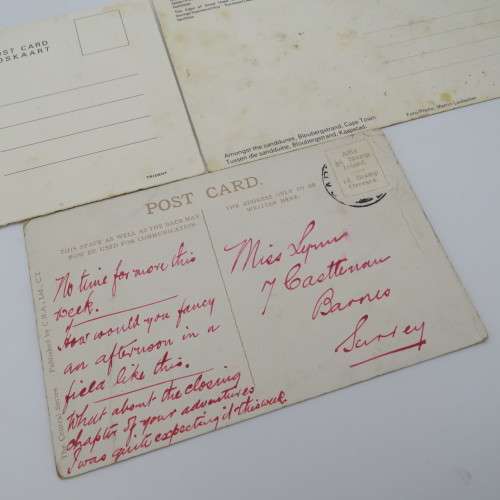 POST CARD
POSKAART
TRIDENT
Amongst the sanddunes, Bloubergstrand, Cape Town
Tussen die sandduine, Bloubergstrand, Kaapstad.
POST CARD.
THIS SPACE AS WELL AS THE BACK MAY
NOW BE USED FOR COMMUNICATION.
THE ADDRESS ONLY TO BE
WRITTEN HERE.
Affix
½d Stamp
Inland.
1d Stamp
No time for more this
week.
How would you fancy
an afternoon in a
field like this.
What about the closing
chapter of your adventures
I was quite expecting it this week.
Miss Lynn
7 Castlenau
Barnes
Surrey